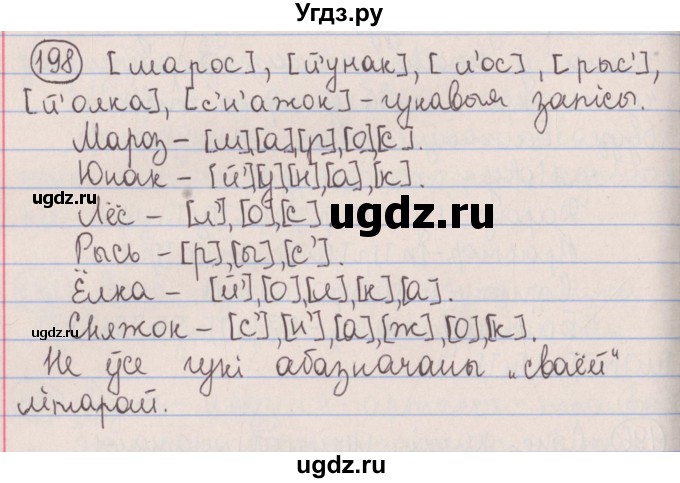 Угдз.ру
198 [марос], [й'унак], [л'ос], [рыс'],
[й'олка], [с'н'ажок] – гукавыя запісы.
Мароз – [м][а][р][о][с].
Юнак – [й'][у][н][а],[к].
ugdz.ru
Лёс – [л'],[о],[с]
ugdz.ru
Рысь – [р],[ы],[с'].
Ёлка – [й'],[о],[л],[к],[а].
ugdz.ru
Сняжок – [с'],[н'],[а],[ж],[о],[к].
ugdz.ru
Не ўсе гукі абазначаны „сваёй“
літарай.
ugdz.ru